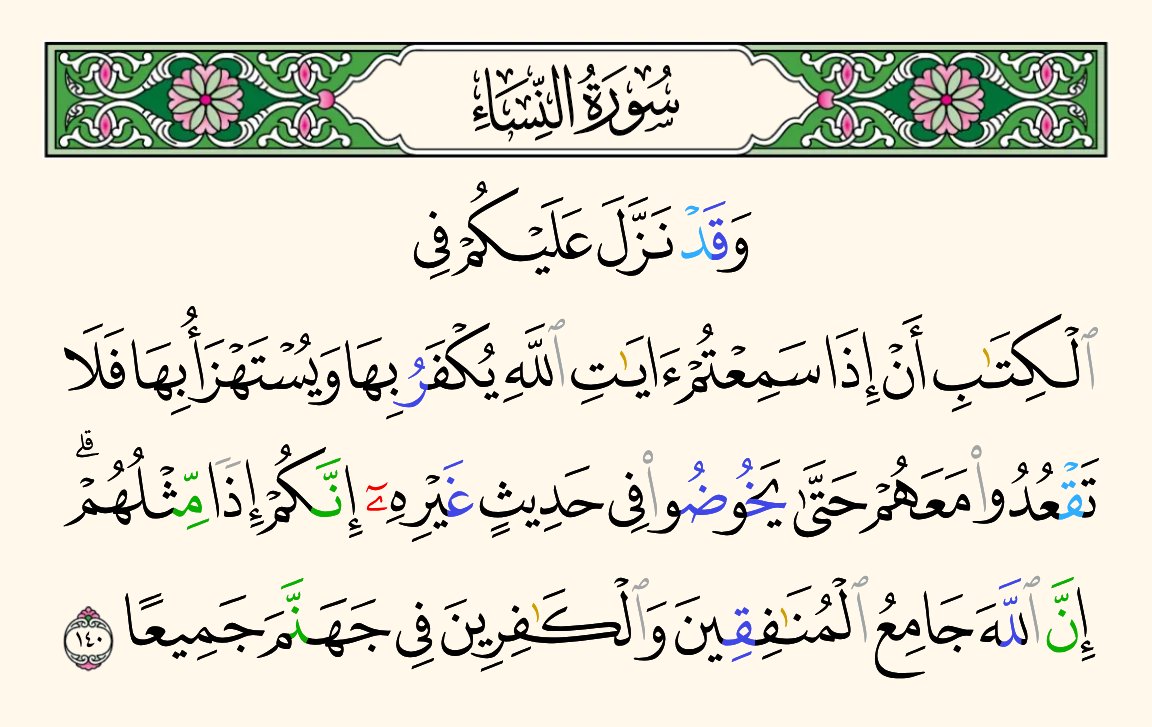 سُورَةُ النِّسَاءِ
وَقَدْ نَزَّلَ عَلَيْكُمْ فِى
ٱلْكِتَـٰبِ أَنْ إِذَا سَمِعْتُمْ ءَايَـٰتِ ٱللَّهِ يُكْفَرُ بِهَا وَيُسْتَهْزَأُ بِهَا فَلَا
تَقْعُدُوا۟ مَعَهُمْ حَتَّىٰ يَخُوضُوا۟ فِى حَدِيثٍ غَيْرِهِۦٓ إِنَّكُمْ إِذًا مِّثْلُهُمْ ۗ
إِنَّ ٱللَّهَ جَامِعُ ٱلْمُنَـٰفِقِينَ وَٱلْكَـٰفِرِينَ فِى جَهَنَّمَ جَمِيعًا ١٤٠